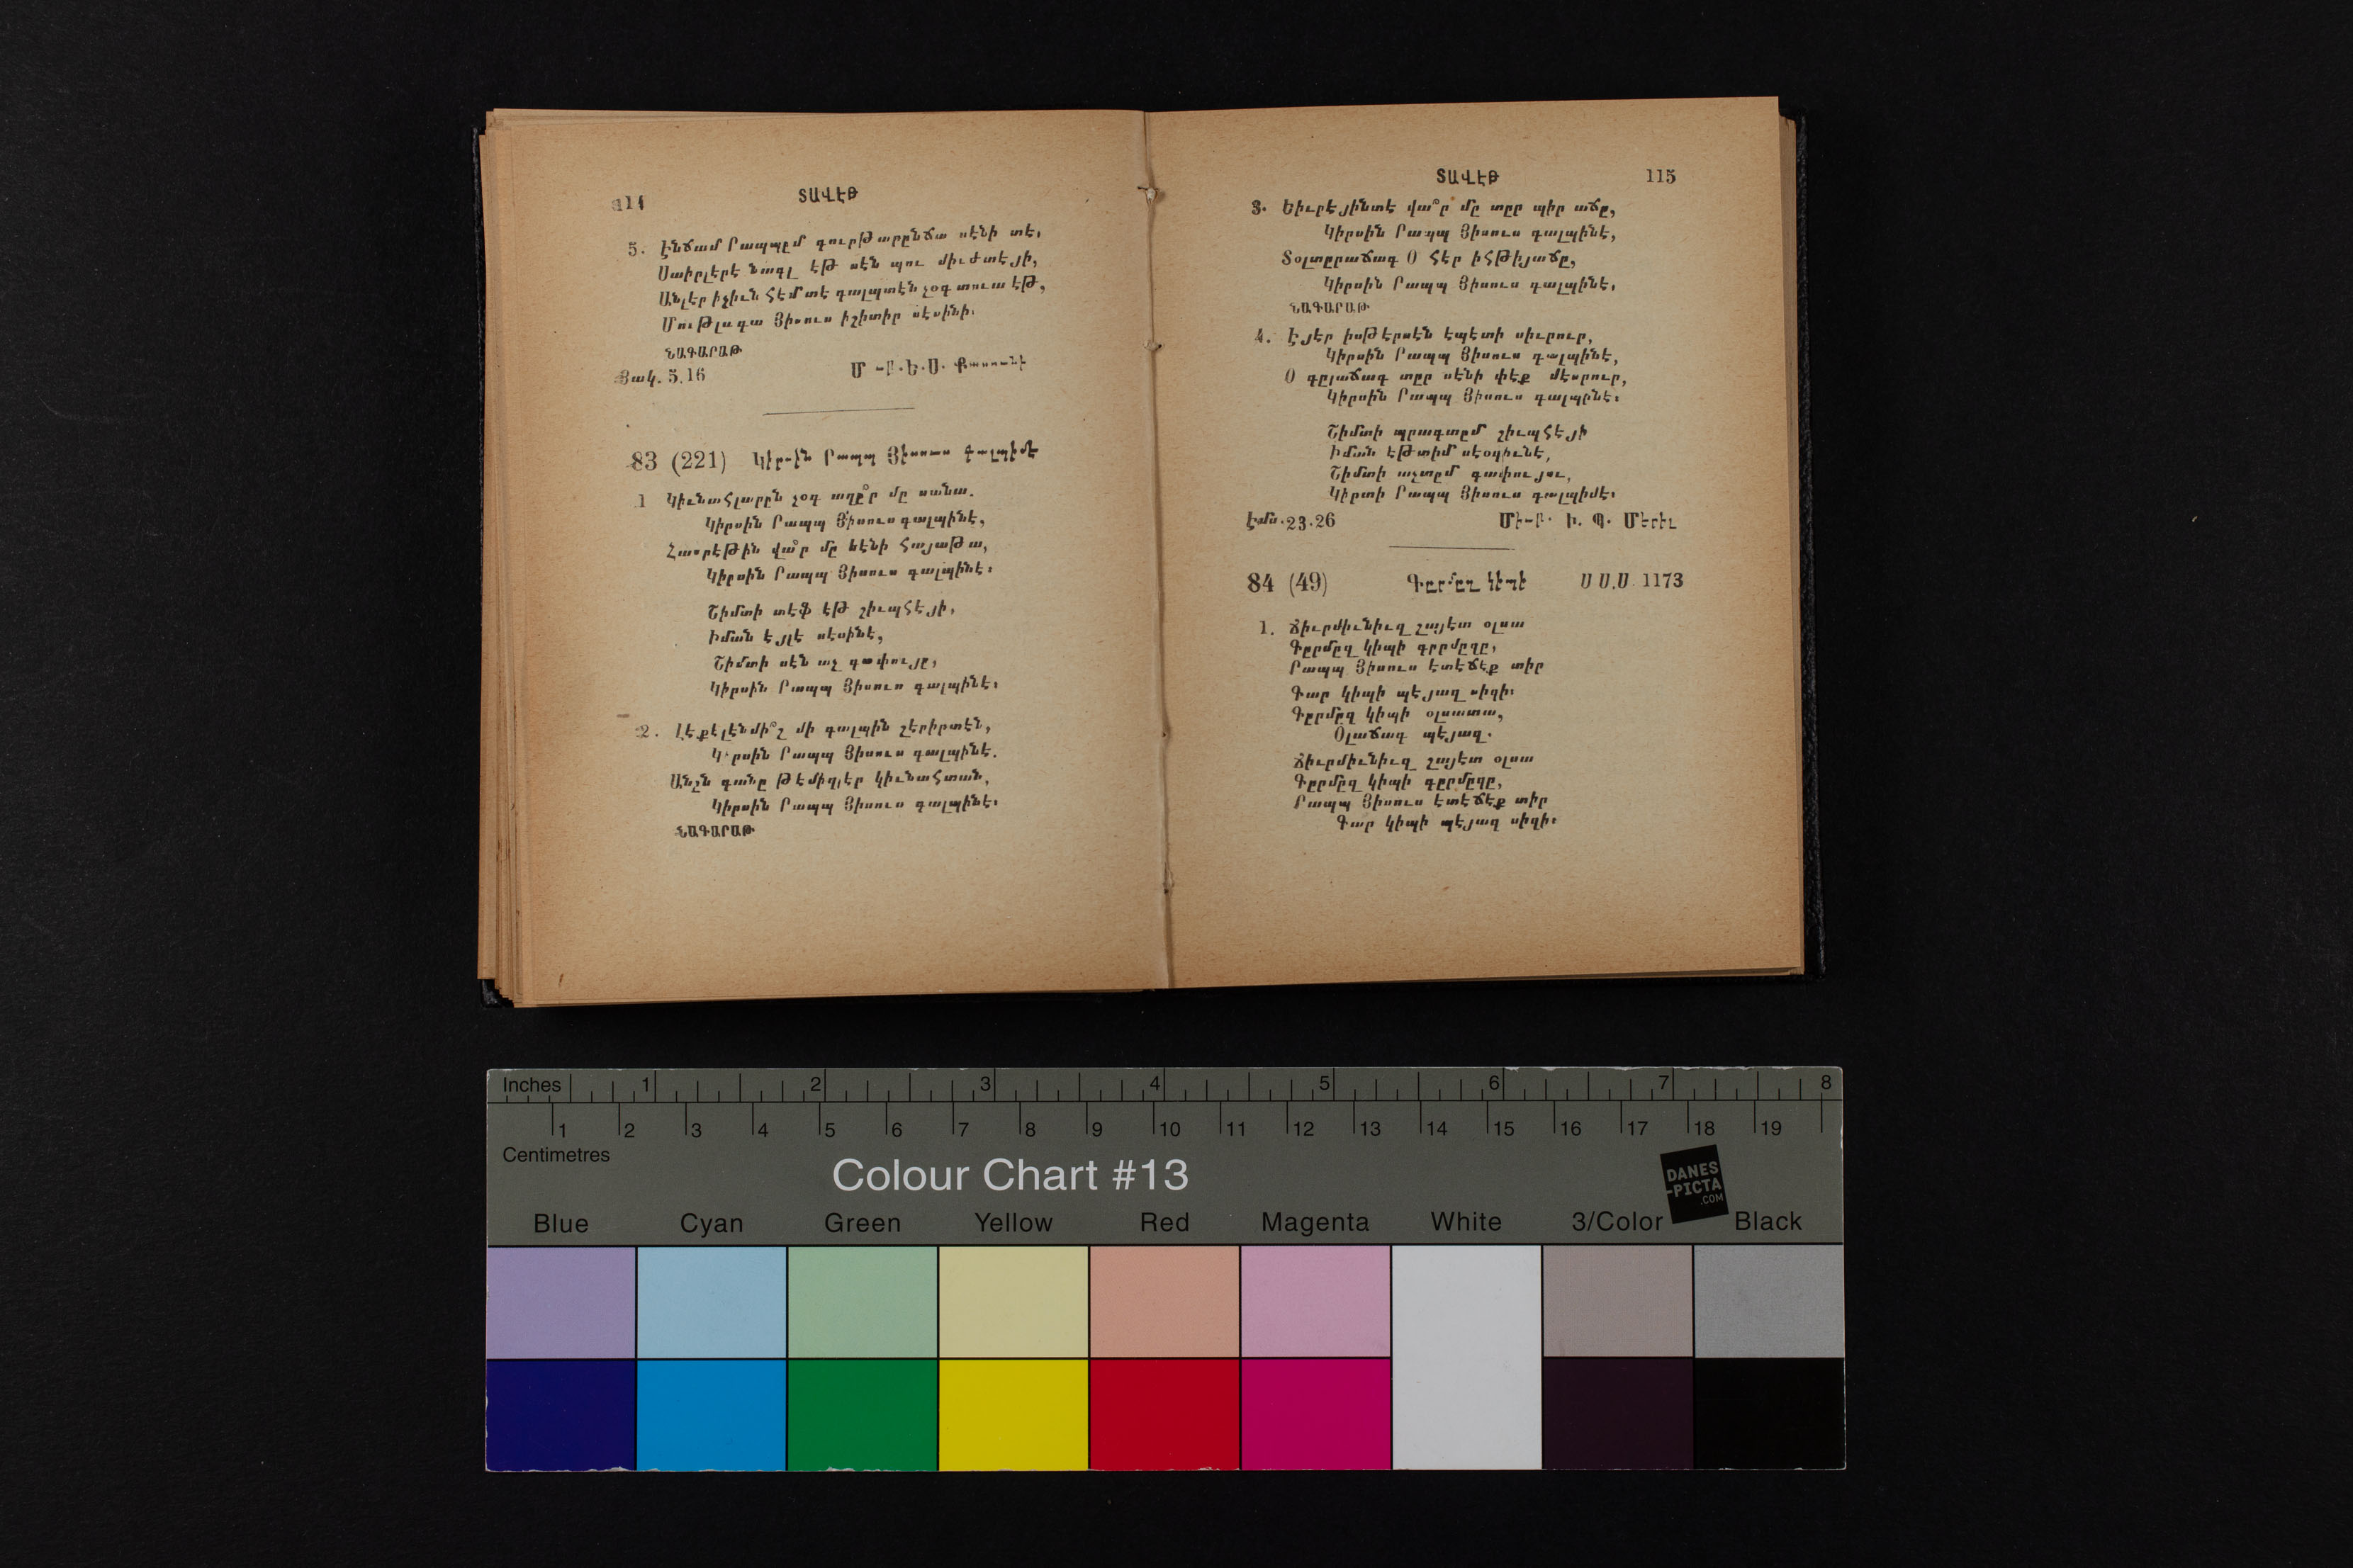 114
ՏԱՎԷԹ
5. Էնճամ Րապպըմ գուրթարընճա սէնի տէ,
Սաիրլէրէ նագլ էթ սէն պու միւժտէյի,
Անլէր իչիւն հէմտէ գալպտէն չօգ տուա էթ,
Մութլագա Յիսուս իշիտիր սէսինի.
ՆԱԳԱՐԱԹ
Յակ. 5.16
83 (221) Կիրսին Րապպ Յիսուս
1 Կիւնահլարըն չօգ աղը՞ր մը սանա.
Կիրսին Րապպ Յիսուս գալպինէ,
Հասրէթին վա՞ր մը եէնի հայաթա,
Կիրսին Րապպ Յիսուս գալպինէ։
Շիմտի տէֆ էթ շիւպհէյի,
Իման էյլէ սէսինէ,
Շիմտի սէն աչ գափույը,
Կիրսին Րապպ Յիսուս գալպինէ։
2. Լէքէլէնմի՞շ մի գալպին շէրիրտէն,
Կիրսին Րապպ Յիսուս գալպինէ.
Անըն գանը թէմիզլէր կիւնահտան,
Կիրսին Րապպ Յիսուս գալպինէ։
ՆԱԳԱՐԱԹ
ՏԱՎԷԹ
115
3. Եիւրէյինտէ վա՞ր մը տըր պիր աճը,
Կիրսին Րապպ Յիսուս գալպինէ,
Տօլտըրաճագ Օ հէր իհթիյաճը,
Կիրսին Րապպ Յիսուս գալպինէ,
ՆԱԳԱՐԱԹ
4. Էյէր իսթէրսէն էպէտի սիւրուր,
Կիրսին Րապպ Յիսուս գալպինէ,
Օ գըլաճագ տըր սէնի փէք մէսրուր,
Կիրսին Րապպ Յիսուս գալպընէ։
Շիմտի պրագտըմ շիւպհէյի
Իման էթտիմ սէօզիւնէ,
Շիմտի աչտըմ գափույու,
Կիրտի Րապպ Յիսուս գալպիմէ։
Էմս. 23.26
84 (49) Գըրմըզ կիպի Ս Ս.Ս. 1173
1. Ճիւրմիւնիւզ շայէտ օլսա
Գըրմըզ կիպի գըրմըզը,
Րապպ Յիսուս էտէճէք տիր
Գար կիպի պէյազ սիզի։
Գըրմըզ կիպի օլսատա,
Օլաճագ պէյազ.
Ճիւրմիւնիւզ շայէտ օլսա
Գըրմըզ կիպի գըրմըզը,
Րապպ Յիսուս էտէճէք տիր
Գար կիպի պէյազ սիզի։
Inches 1 2 3 4 5 6 7 8
1 2 3 4 5 6 7 8 9 10 11 12 13 14 15 16 17 18 19
Centimetres
Colour Chart #13
DANES
-PICTA
.COM
Blue Cyan Green Yellow Red Magenta White 3/Color Black